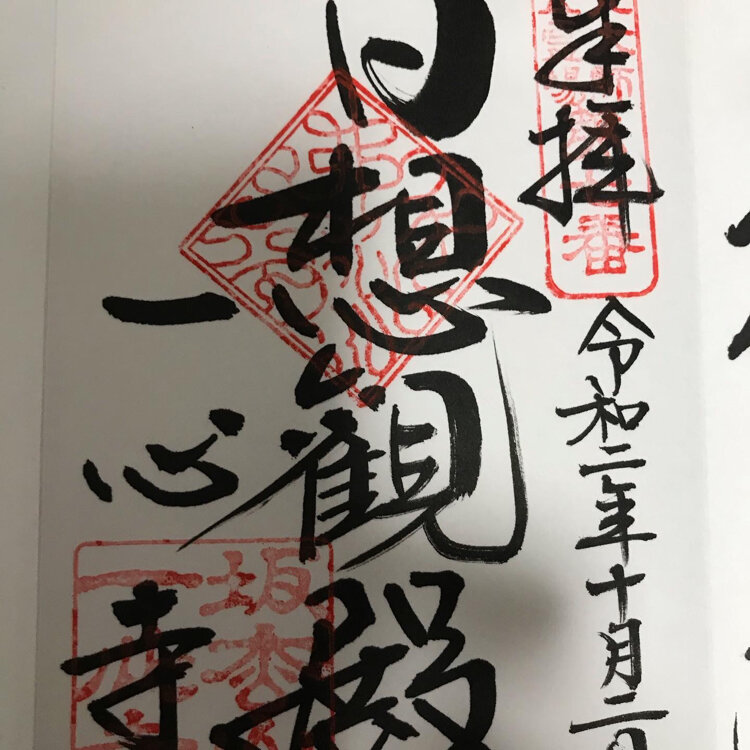 奉拝
令和二年十月二日
日想観殿
一心寺
番
坂松